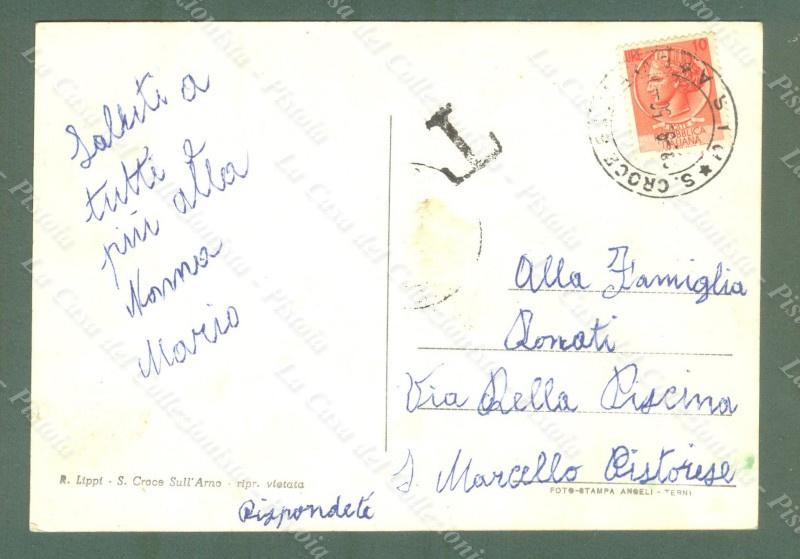 Saluti a
tutti
più alla
Nonna
Mario
R. Lippi - S. Croce Sull'Arno - ripr. vietata
Rispondete
T
LIRE 10
REPUBBLICA
ITALIANA
S. CROCE
Alla Famiglia
Donati
Via Della Piscina
S. Marcello Pistoiese
FOTO-STAMPA ANGELI - TERNI
La Casa del Collezionista - Pistoia